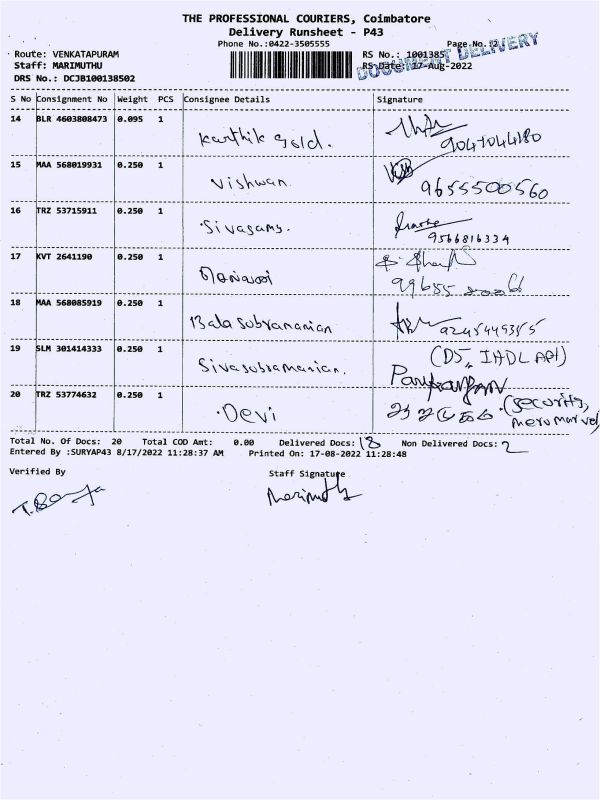 THE PROFESSIONAL COURIERS, Coimbatore
Delivery Runsheet - P43
Phone No.:0422-3505555
Page No. 2
DOCUMENT DELIVERY
Route: VENKATAPURAM
RS No.: 1001385
Staff: MARIMUTHU
RS Date: 17-Aug-2022
DRS No.: DCJB100138502
S No Consignment No Weight PCS Consignee Details Signature
14 BLR 4603808473 0.095 1 Karthik gold.
15 MAA 568019931 0.250 1 Vishwan 9655500560
16 TRZ 53715911 0.250 1 Sivasamy. 9566816334
17 KVT 2641190 0.250 1
18 MAA 568085919 0.250 1 Balasubramanian
19 SLM 301414333 0.250 1 Sivasubramanian.
20 TRZ 53774632 0.250 1 Devi (Security,
Total No. Of Docs: 20 Total COD Amt: 0.00 Delivered Docs: 18 Non Delivered Docs: 2
Entered By :SURYAP43 8/17/2022 11:28:37 AM Printed On: 17-08-2022 11:28:48
Verified By Staff Signature